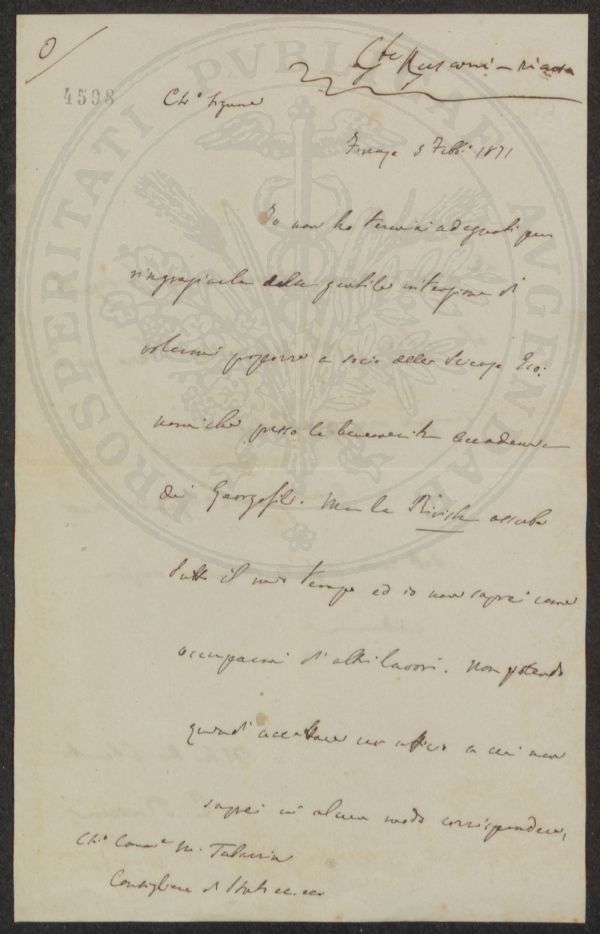 Rusconi
4598
Ch.o Signore
Firenze 3 Febb. 1871
Io non ho termini adeguati per
ringraziarla della gentile intenzione di
volermi proporre a socio delle Scienze Eco:
nomiche presso la benemerita Accademia
dei Georgofili. Ma la Rivista assorbe
tutto il mio tempo ed io non saprei come
occuparmi di altri lavori. Non potendo
quindi accettare un ufficio a cui non
saprei in alcun modo corrispondere,
Ch.o Comm.e M. Tabarrini
Consigliere di Stato ec. ec.
PROSPERITATI PVBLICAE AVGENDAE